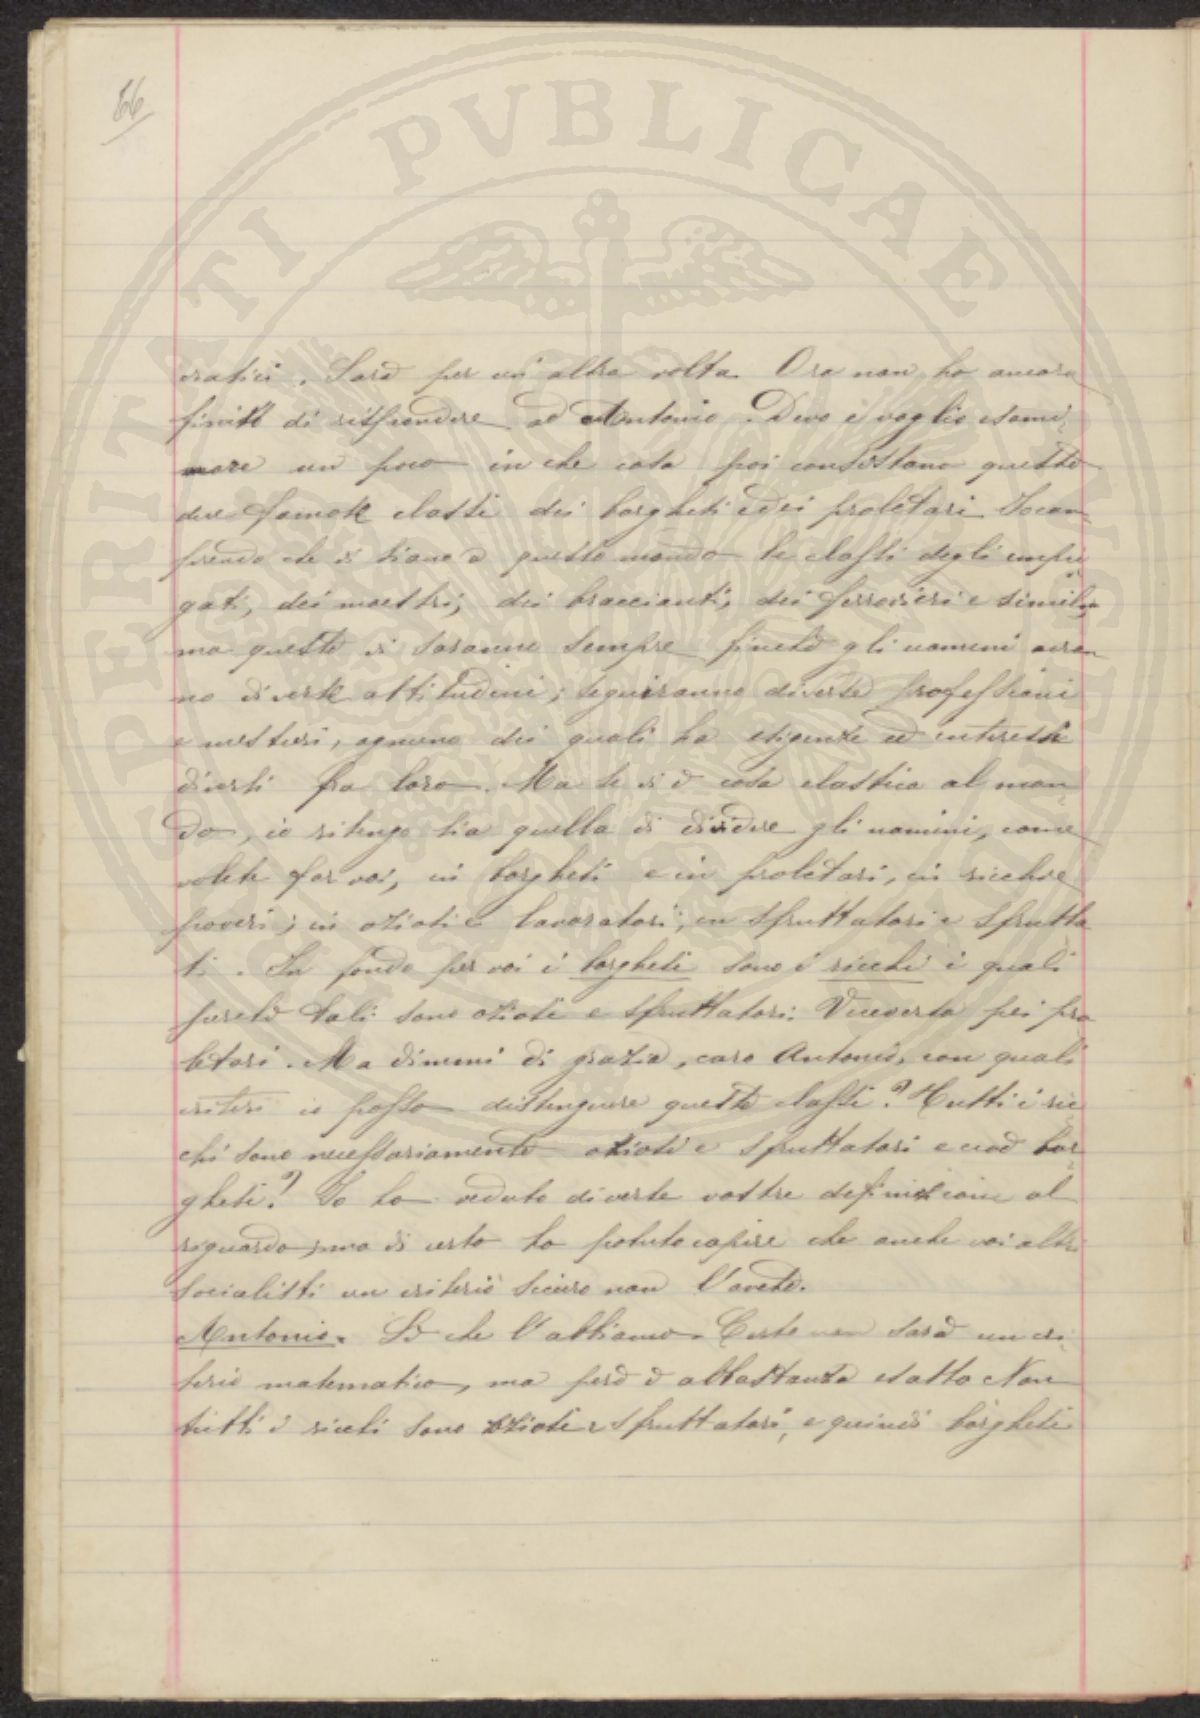 66
cratici. Sarà per un'altra volta. Ora non ho ancora
finito di rispondere ad Antonio. Devo e voglio esami-
nare un poco in che cosa poi consistano queste
due famose classi dei borghesi e dei proletari. Io com-
prendo che vi siano a questo mondo le classi degli impie-
gati, dei maestri, dei braccianti, dei ferrovieri e simili,
ma queste vi saranno sempre finchè gli uomini avran-
no diverse attitudini; seguiranno diverse professioni
e mestieri, ognuno dei quali ha esigenze ed interessi
diversi fra loro. Ma se vi è cosa elastica al mon-
do, io ritengo sia quella di dividere gli uomini, come
volete far voi, in borghesi e in proletari, in ricchi e
poveri; in oziosi e lavoratori; in sfruttatori e sfrutta-
ti. In fondo per voi i borghesi sono i ricchi i quali
perchè tali sono oziosi e sfruttatori. Viceversa pei pro-
letari. Ma dimmi di grazia, caro Antonio, con quali
criteri io posso distinguere queste classi? Tutti i ric-
chi sono necessariamente oziosi e sfruttatori e cioè bor-
ghesi? Io ho veduto diverse vostre definizioni al
riguardo; ma di certo ho potuto capire che anche voi altri
socialisti un criterio sicuro non l'avete.
Antonio. Sì che l'abbiamo. Certo non sarà un cri-
terio matematico, ma però è abbastanza esatto. Non
tutti i ricchi sono oziosi e sfruttatori, e quindi borghesi